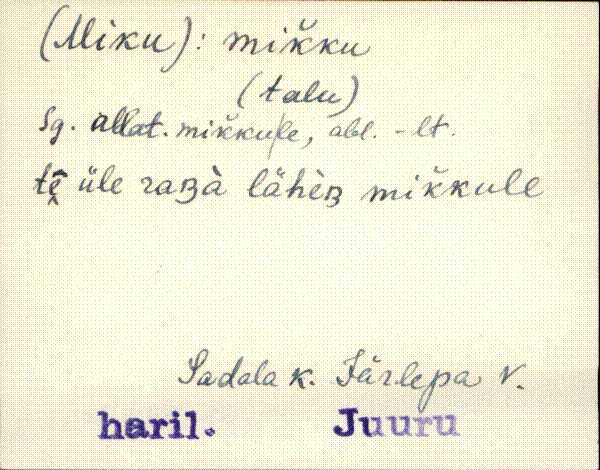 (Miku): mik̆ku
(talu)
Sg. allat. mik̆ku|le, abl. -lt.
tḙ̄ üle raʙà lähèʙ mik̆kule
Sadala k. Järlepa v.
haril. Juuru